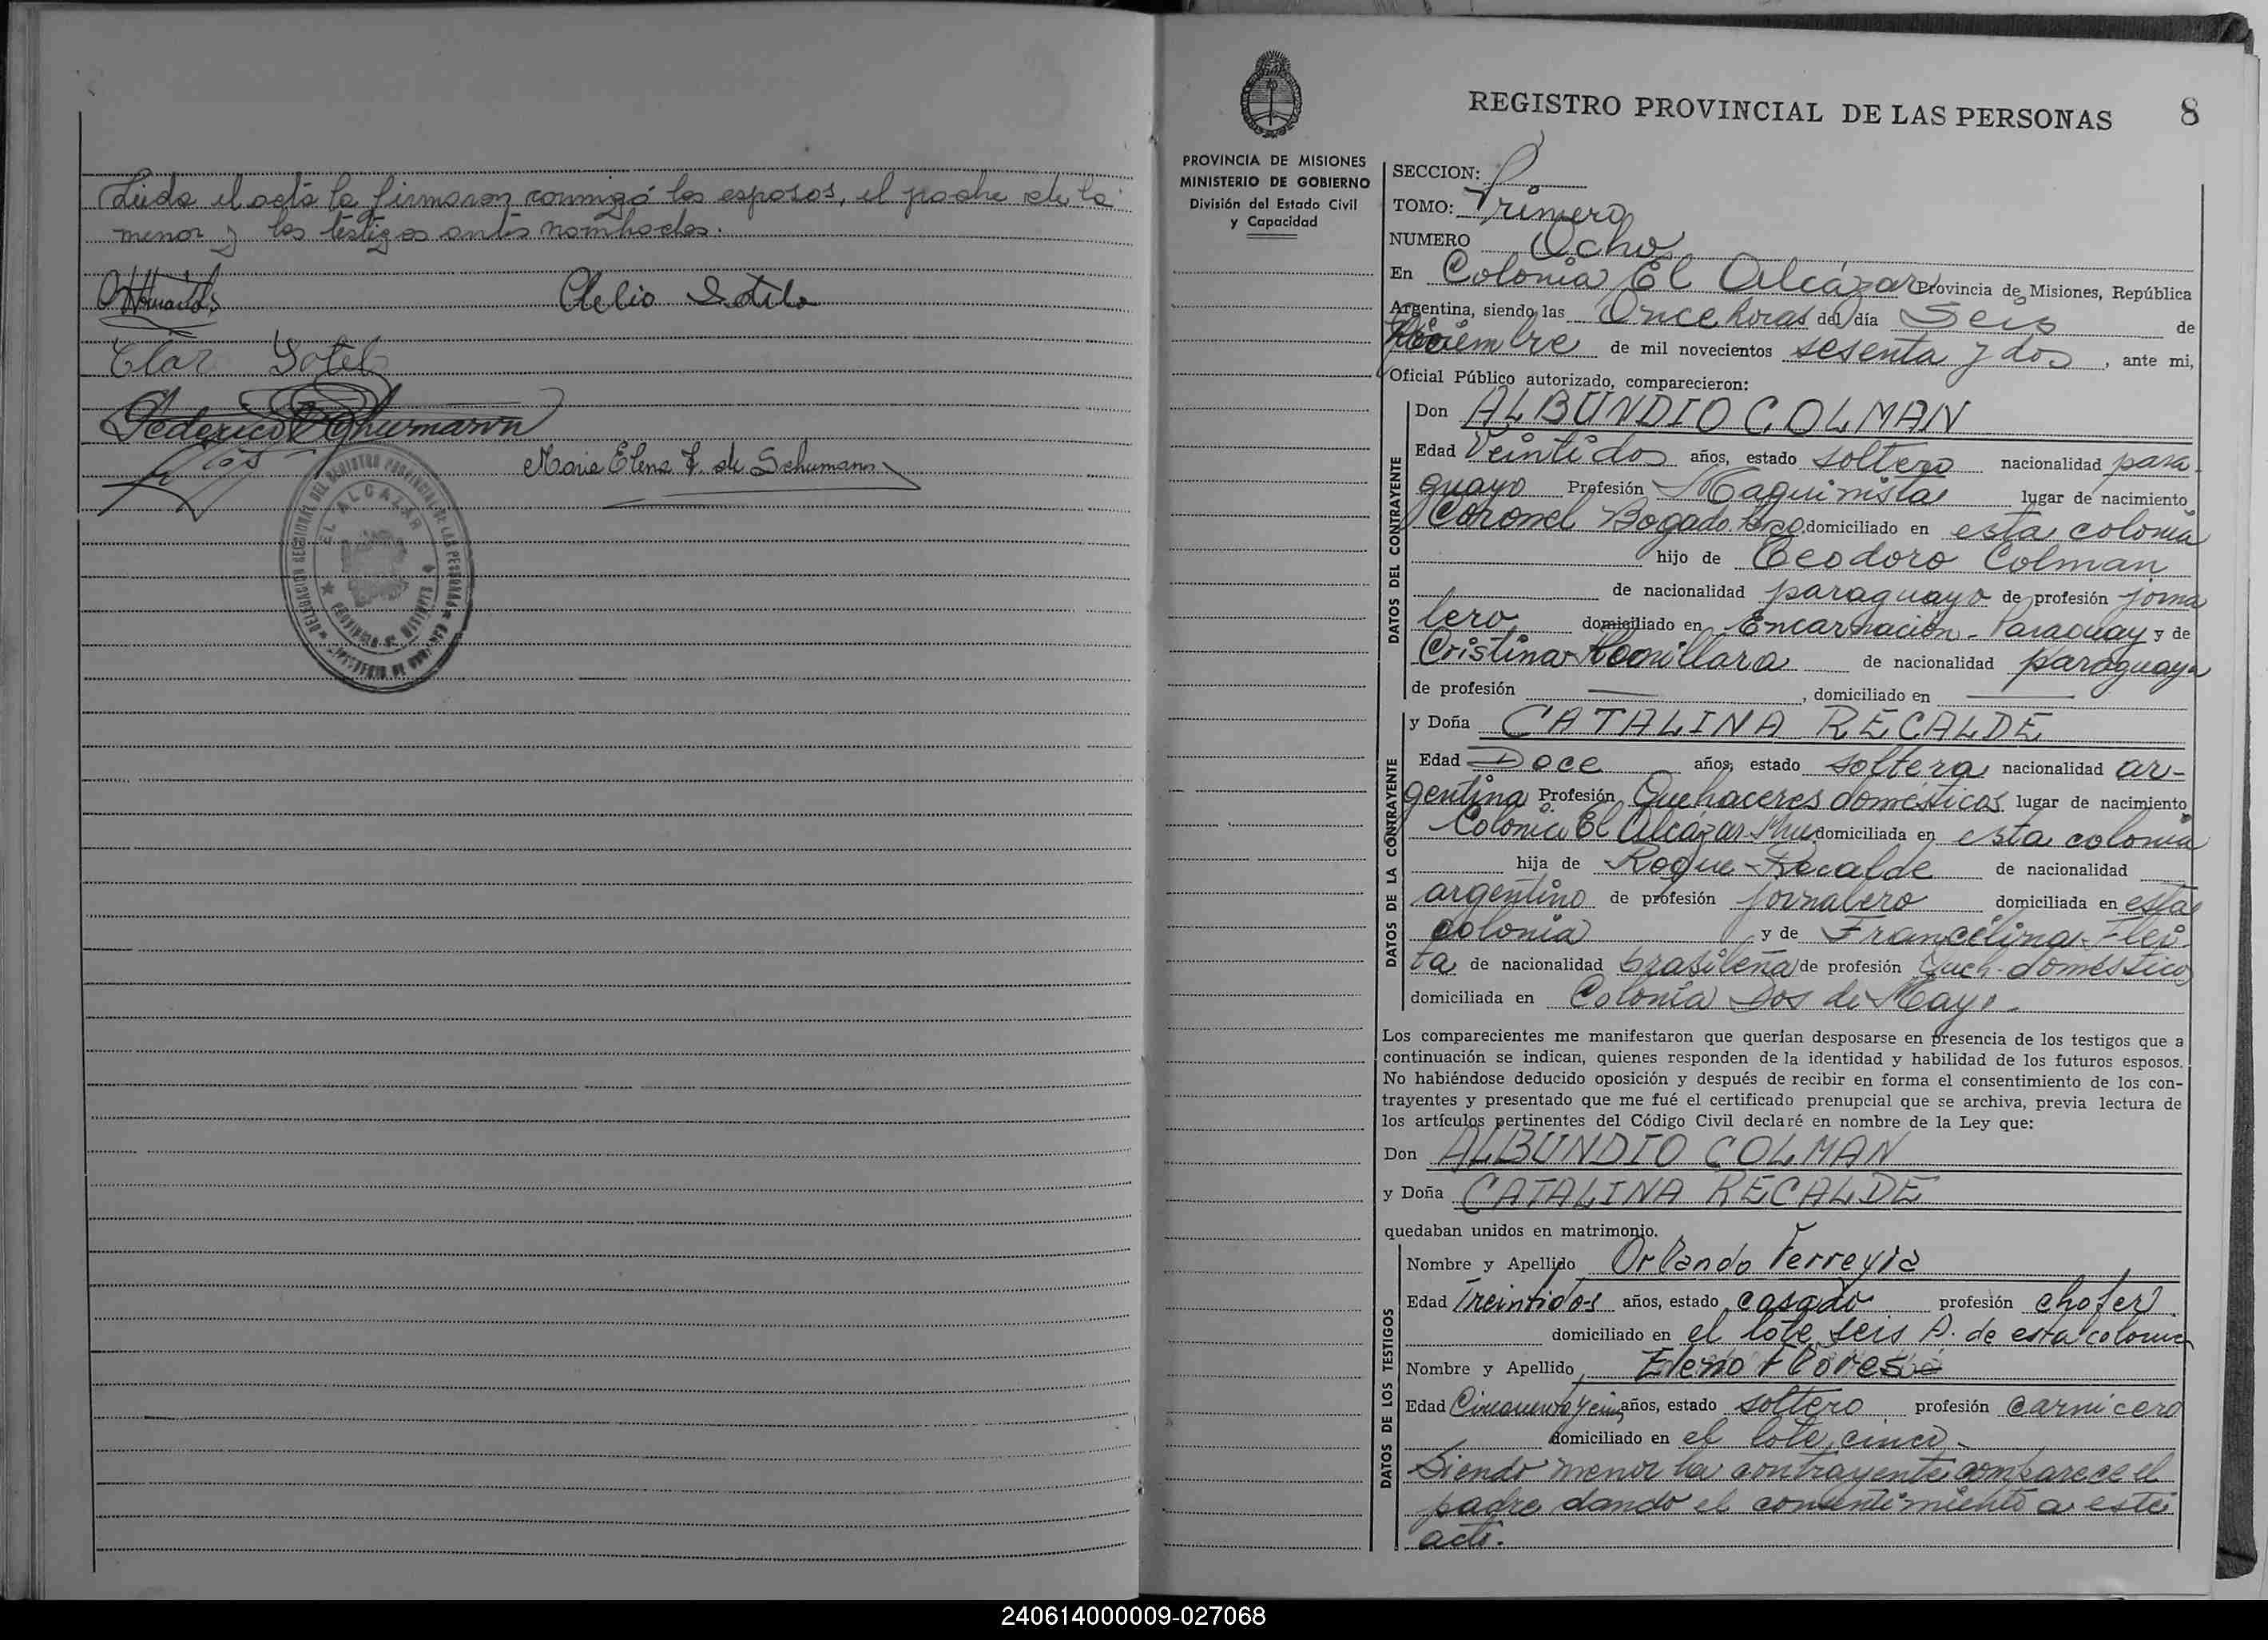 Leida el acta la firmaron conmigo los esposos, el padre de la
menor y los testigos antes nombrados.
Clelio Sotelo
Sotelo
Federico Schumann
Maria Elena F. de Schumann
DELEGACION SECCIONAL DEL REGISTRO PROVINCIAL DE LAS PERSONAS
EL ALCAZAR
PROVINCIA DE MISIONES
REGISTRO PROVINCIAL DE LAS PERSONAS 8
PROVINCIA DE MISIONES
MINISTERIO DE GOBIERNO
División del Estado Civil
y Capacidad
SECCION:
TOMO: Primero
NUMERO Ocho
En Colonia El Alcázar Provincia de Misiones, República
Argentina, siendo las Once horas del día Seis de
de mil novecientos sesenta y dos, ante mi,
Oficial Público autorizado, comparecieron:
DATOS DEL CONTRAYENTE
Don ALBUNDIO COLMAN
Edad Veintidos años, estado soltero nacionalidad para-
guayo Profesión Maquinista lugar de nacimiento
Coronel Bogado domiciliado en esta colonia
hijo de Teodoro Colman
de nacionalidad paraguayo de profesión jorna
lero domiciliado en Encarnación - Paraguay y de
Cristina de nacionalidad paraguaya
de profesión , domiciliado en
DATOS DE LA CONTRAYENTE
y Doña CATALINA RECALDE
Edad Doce años, estado soltera nacionalidad ar-
gentina Profesión Quehaceres domésticos lugar de nacimiento
Colonia El Alcázar domiciliada en esta colonia
hija de Roque Recalde de nacionalidad
argentino de profesión jornalero domiciliada en esta
colonia y de Francelina Flei
ta de nacionalidad brasileña de profesión Queh. domésticos
domiciliada en Colonia Dos de Mayo.-
Los comparecientes me manifestaron que querían desposarse en presencia de los testigos que a
continuación se indican, quienes responden de la identidad y habilidad de los futuros esposos.
No habiéndose deducido oposición y después de recibir en forma el consentimiento de los con-
trayentes y presentado que me fué el certificado prenupcial que se archiva, previa lectura de
los artículos pertinentes del Código Civil declaré en nombre de la Ley que:
Don ALBUNDIO COLMAN
y Doña CATALINA RECALDE
quedaban unidos en matrimonio.
DATOS DE LOS TESTIGOS
Nombre y Apellido Orlando Ferreyra
Edad Treintidos años, estado casado profesión chofer
domiciliado en el lote seis A. de esta colonia
Nombre y Apellido Flores
Edad años, estado soltero profesión carnicero
domiciliado en el lote cinco.-
Siendo menor la contrayente comparece el
padre dando el consentimiento a este
acto.
240614000009-027068